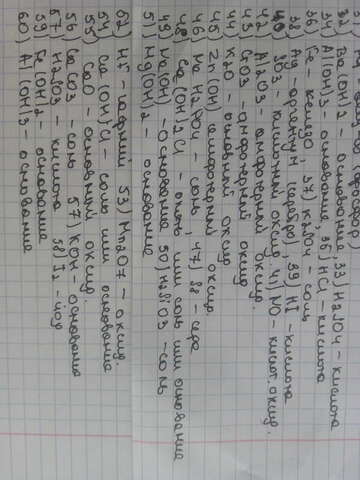 32) Ba(OH)2 - основание, 33) H2SO4 - кислота
34) Al(OH)3 - основание, 35) HCl - кислота
36) Fe - железо, 37) K2SO4 - соль
38) Ag - аргентум (серебро), 39) HI - кислота
40) SO3 - кислотный оксид, 41) NO - кислот. оксид.
42) Al2O3 - амфотерный оксид.
43) CrO3 - амфотерный оксид
44) K2O - основный оксид
45) Zn(OH) амфотерный оксид
46) NaH2PO4 - соль, 47) S8 - сера
48) Ca(OH)2Cl - опять или соль или основание
49) Na(OH) - основание 50) H2SiO3 - соль
51) Mg(OH)2 - основание
52) 53) Mn2O7 - оксид.
54) Ca(OH)Cl - соль или основание
55) CaO - основный оксид.
56) CaCO3 - соль 57) KOH - основание
57) H2SO3 - кислота 58) I2 - йод
59) Fe(OH)2 - основание
60) Al(OH)3 - основание